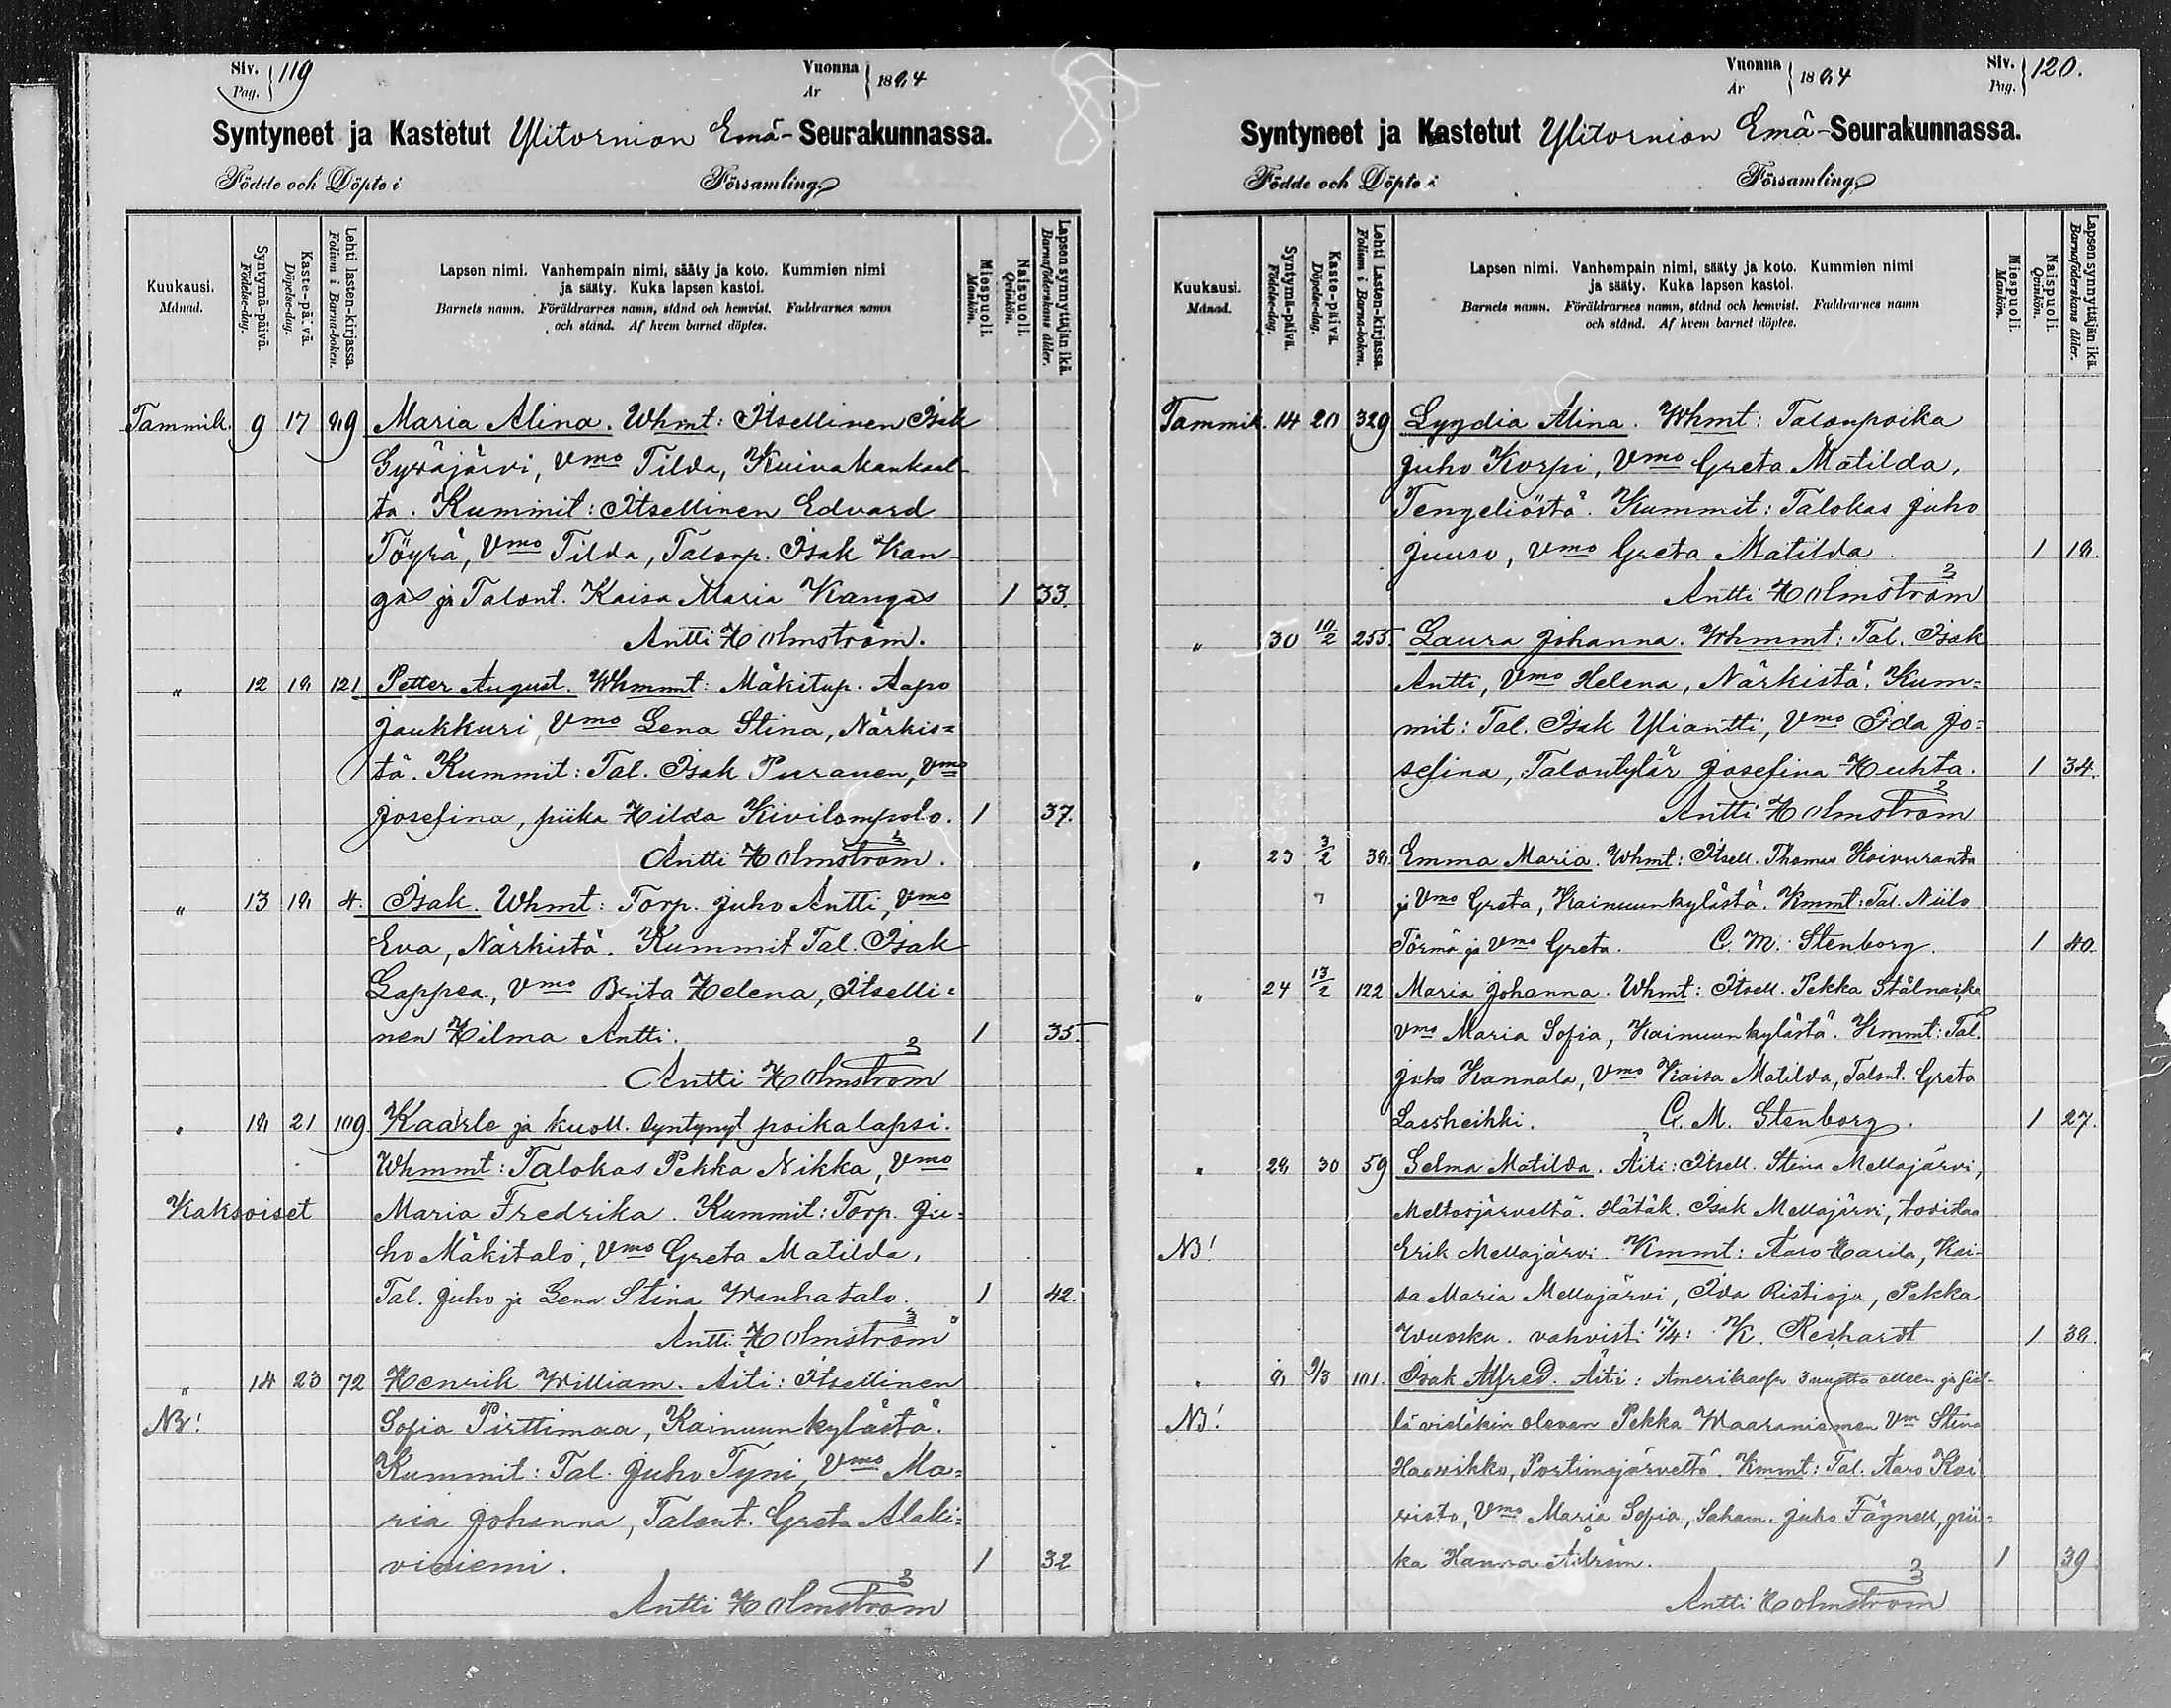 Siv. Pag. 119
Vuonna År 1894
Syntyneet ja Kastetut Ylitornion Emä-Seurakunnassa.
Födde och Döpte i Församling
Kuukausi. Månad.
Syntymä-päivä. Födelse-dag.
Kaste-päivä. Döpelse-dag.
Lehti lasten-kirjassa. Folium i Barna-boken.
Lapsen nimi. Vanhempain nimi, sääty ja koto. Kummien nimi
ja sääty. Kuka lapsen kastoi.
Barnets namn. Föräldrarnes namn, stånd och hemvist. Faddrarnes namn
och stånd. Af hvem barnet döptes.
Miespuoli. Mankön.
Naispuoli. Qvinkön.
Lapsen synnyttäjän ikä. Barnaföderskans ålder.
Tammik. 9 17 99 Maria Alina. Whmt: Itsellinen Isak
Syväjärvi, Vmo Tilda, Kuivakankaal-
ta. Kummit: Itsellinen Edvard
Töyrä, Vmo Tilda, Talonp. Isak Kan-
gas ja Talont. Kaisa Maria Kangas 1 33.
Antti Holmström.
" 12 19 121 Petter August. Whmmt: Mäkitup. Aapo
Jaukkuri, Vmo Lena Stina, Närkis=
tä. Kummit: Tal. Isak Puranen, Vmo
Josefina, piika Hilda Kivilompolo. 1 37.
Antti Holmström.
" 13 19 4. Isak. Whmt: Torp. Juho Antti, Vmo
Eva, Närkistä. Kummit Tal. Isak
Lappea, Vmo Brita Helena, Itselli=
nen Hilma Antti. 1 35.
Antti Holmström
" 19 21 109 Kaarle ja kuoll. syntynyt poikalapsi.
Whmmt: Talokas Pekka Nikka, Vmo
Kaksoiset Maria Fredrika. Kummit: Torp. Ju=
ho Mäkitalo, Vmo Greta Matilda,
Tal. Juho ja Lena Stina Wanhatalo. 1 42.
Antti Holmström
" 14 23 72 Henrik William. Äiti: Itsellinen
NB! Sofia Pirttimaa, Kainuunkylästä.
Kummit: Tal. Juho Tyni, Vmo Ma=
ria Johanna, Talont. Greta Alaki=
viniemi. 1 32
Antti Holmström
Vuonna År 1894
Siv. Pag. 120.
Syntyneet ja Kastetut Ylitornion Emä-Seurakunnassa.
Födde och Döpte i Församling
Kuukausi. Månad.
Syntymä-päivä. Födelse-dag.
Kaste-päivä. Döpelse-dag.
Lehti Lasten-kirjassa. Folium i Barna-boken.
Lapsen nimi. Vanhempain nimi, sääty ja koto. Kummien nimi
ja sääty. Kuka lapsen kastoi.
Barnets namn. Föräldrarnes namn, stånd och hemvist. Faddrarnes namn
och stånd. Af hvem barnet döptes.
Miespuoli. Mankön.
Naispuoli. Qvinkön.
Lapsen synnyttäjän ikä. Barnaföderskans ålder.
Tammik. 14 20 329 Lyydia Alina. Whmt: Talonpoika
Juho Korpi, Vmo Greta Matilda,
Tengeliöstä. Kummit: Talokas Juho
Juuso, Vmo Greta Matilda. 1 19.
Antti Holmström
" 30 10/2 255. Laura Johanna. Whmmt: Tal. Isak
Antti, Vmo Helena, Närkistä. Kum=
mit: Tal. Isak Yliantti, Vmo Ida Jo=
sefina, Talontytär Josefina Huhta. 1 34.
Antti Holmström
" 23 3/2 39. Emma Maria. Whmt: Itsell. Thomas Koivuranta
ja Vmo Greta, Kainuunkylästä. Kmmt: Tal. Niilo
Törmä ja Vmo Greta. C. M. Stenborg. 1 40.
" 24 13/2 122 Maria Johanna. Whmt: Itsell. Pekka Stålnacke
Vmo Maria Sofia, Kainuunkylästä. Kmmt: Tal.
Juho Hannala, Vmo Kaisa Matilda, Talont. Greta
Lassheikki. C. M. Stenborg. 1 27.
" 29 30 59 Selma Matilda. Äiti: Itsell. Stina Mellajärvi,
Meltosjärveltä. Hätäk. Isak Mellajärvi, todistaa
NB! Erik Mellajärvi. Kmmt: Aaro Harila, Kai-
sa Maria Mellajärvi, Ida Ristioja, Pekka
Wuosku. vahvist. 17/4: K. Rechardt 1 39.
" 9 9/3 101. Isak Alfred. Äiti: Amerikassa 3 vuotta olleen ja siel-
NB! lä vieläkin olevan Pekka Waaraniemen Vm Stina
Haavikko, Portimojärveltä. Kmmt: Tal. Aaro Koi
visto, Vmo Maria Sofia, Saham. Juho Fägnell, pii=
ka Hanna 1 39
Antti Holmström